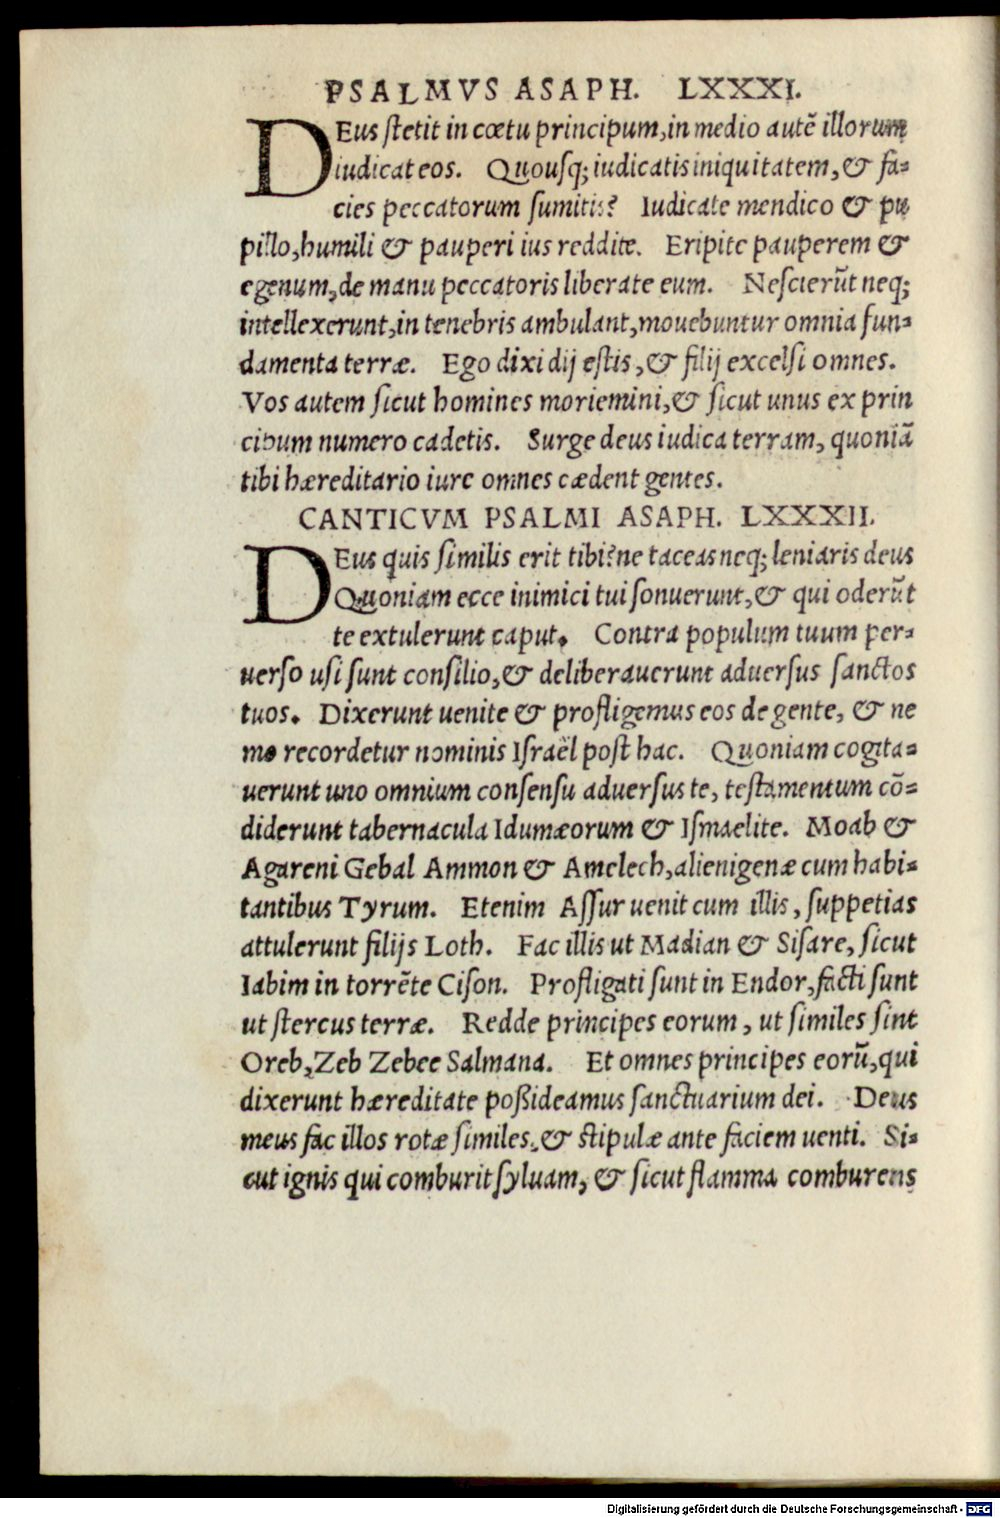 PSALMVS ASAPH. LXXXI.
DEus ſtetit in cœtu principum, in medio autē illorum
iudicat eos. Quouſq; iudicatis iniquitatem, & fa-
cies peccatorum ſumitis? Iudicate mendico & pu
pillo, humili & pauperi ius reddite. Eripite pauperem &
egenum, de manu peccatoris liberate eum. Neſcierūt neq;
intellexerunt, in tenebris ambulant, mouebuntur omnia fun-
damenta terræ. Ego dixi dij eſtis, & filij excelſi omnes.
Vos autem ſicut homines moriemini, & ſicut unus ex prin
cipum numero cadetis. Surge deus iudica terram, quoniā
tibi hæreditario iure omnes cædent gentes.
CANTICVM PSALMI ASAPH. LXXXII.
DEus quis ſimilis erit tibi? ne taceas neq; leniaris deus
Quoniam ecce inimici tui ſonuerunt, & qui oderūt
te extulerunt caput. Contra populum tuum per-
uerſo uſi ſunt conſilio, & deliberauerunt aduerſus ſanctos
tuos. Dixerunt uenite & profligemus eos de gente, & ne
mo recordetur nominis Iſraël poſt hac. Quoniam cogita-
uerunt uno omnium conſenſu aduerſus te, teſtamentum cō-
diderunt tabernacula Idumæorum & Iſmaelite. Moab &
Agareni Gebal Ammon & Amelech, alienigenæ cum habi-
tantibus Tyrum. Etenim Aſſur uenit cum illis, ſuppetias
attulerunt filijs Loth. Fac illis ut Madian & Siſare, ſicut
Iabim in torrēte Ciſon. Profligati ſunt in Endor, facti ſunt
ut ſtercus terræ. Redde principes eorum, ut ſimiles ſint
Oreb, Zeb Zebee Salmana. Et omnes principes eorū, qui
dixerunt hæreditate poßideamus ſanctuarium dei. Deus
meus fac illos rotæ ſimiles, & ſtipulæ ante faciem uenti. Si-
cut ignis qui comburit ſyluam, & ſicut flamma comburens
Digitalisierung gefördert durch die Deutsche Forschungsgemeinschaft - DFG